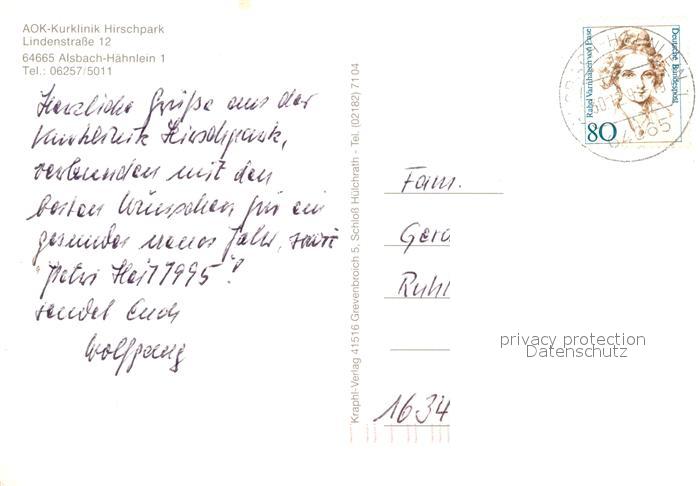 AOK-Kurklinik Hirschpark
Lindenstraße 12
64665 Alsbach-Hähnlein 1
Tel.: 06257/5011
Herzliche Grüße aus der
Kurklinik Hirschpark,
verbunden mit den
besten Wünschen für ein
gesundes neues Jahr, sowie
"Petri Heil 1995"!
sendet Euch
Wolfgang
Kraphl-Verlag 41516 Grevenbroich 5, Schloß Hülchrath - Tel. (02182) 7104
Rahel Varnhagen von Ense
Deutsche Bundespost
80
64665
Fam.
Gero
Ruhl
1634
privacy protection
Datenschutz